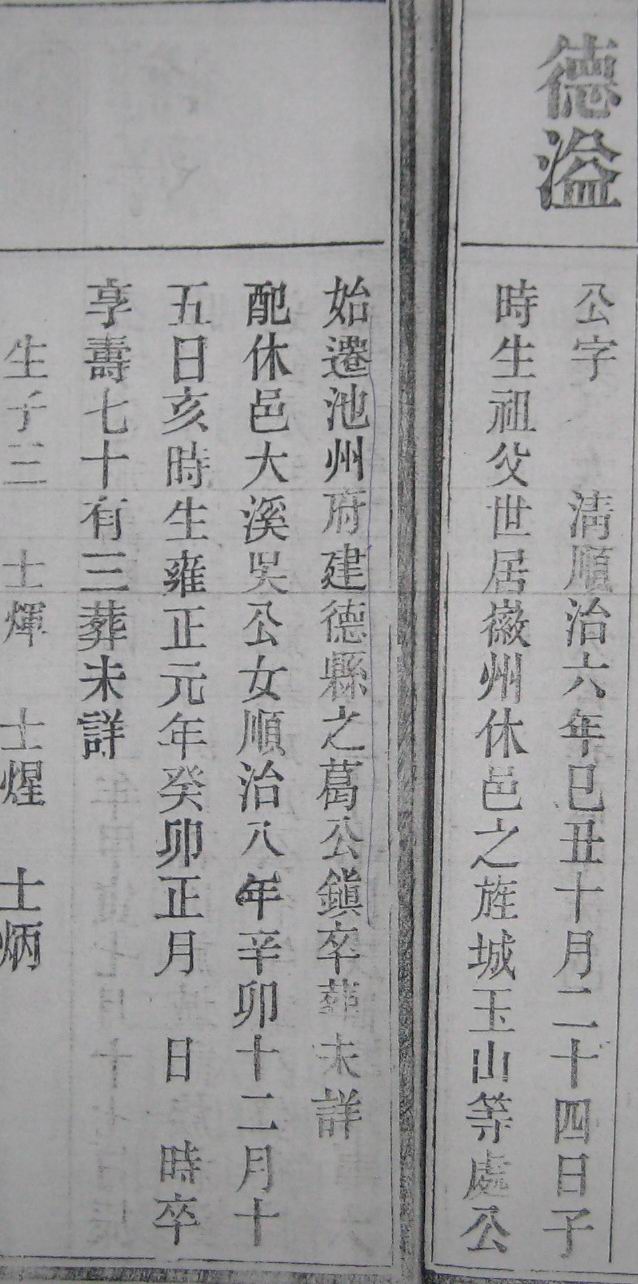 德溢
公字　　清順治六年己丑十月二十四日子
時生祖父世居徽州休邑之旌城玉山等處公
始遷池州府建德縣之葛公鎮卒葬未詳
配休邑大溪吳公女順治八年辛卯十二月十
五日亥時生雍正元年癸卯正月　日　時卒
享壽七十有三葬未詳
生子三　士煇　士煋　士炳